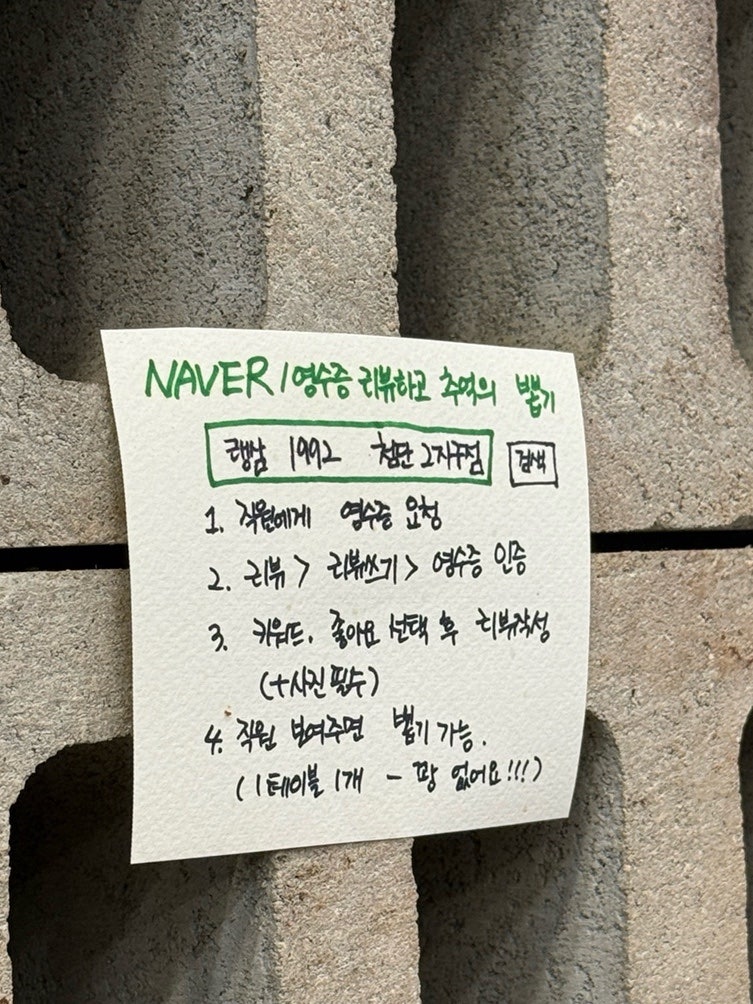 NAVER / 영수증 리뷰하고 추억의 뽑기
랭삼 1992 첨단2지구점 검색
1. 직원에게 영수증 요청
2. 리뷰 > 리뷰쓰기 > 영수증 인증
3. 키워드, 좋아요 선택 후 리뷰작성
(+사진필수)
4. 직원 보여주면 뽑기 가능.
(1테이블 1개 - 꽝 없어요!!!)